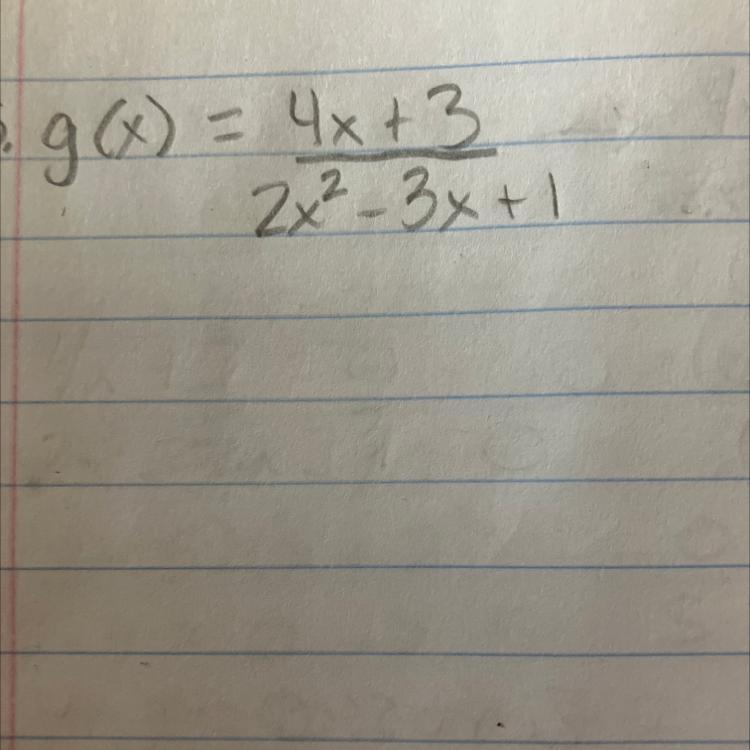 g(x) = 4x + 3
2x² - 3x + 1